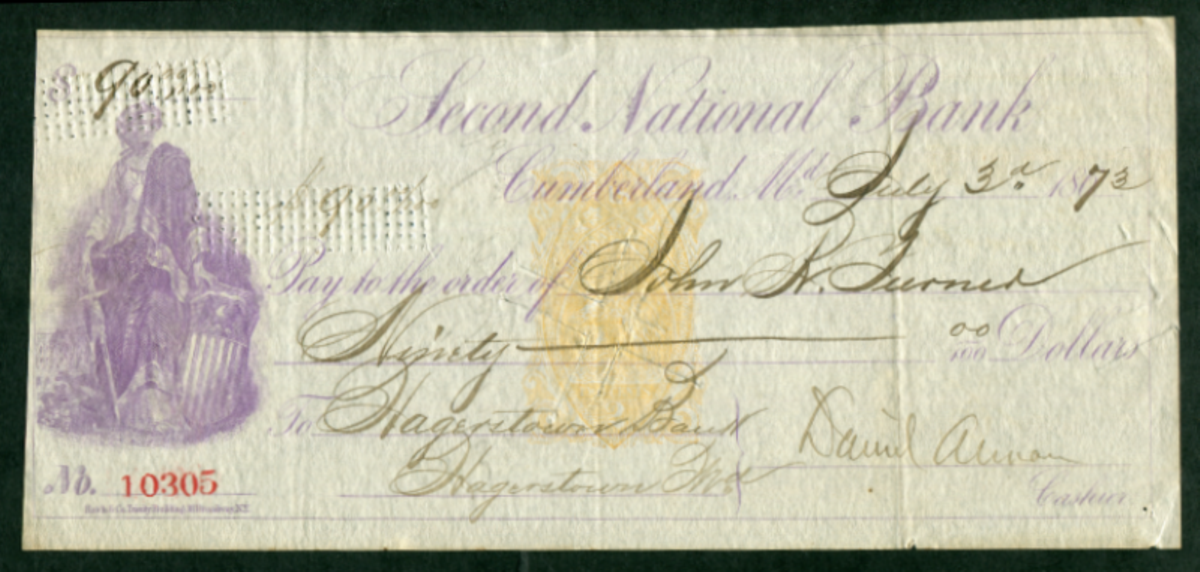 $ 90.00
Second National Bank
Cumberland, Md. July 3d. 1873
$90.00
Pay to the order of John R. Turner
Ninety 00/100 Dollars
To Hagerstown Bank
Hagerstown Md
Daniel
No. 10305
Cashier.